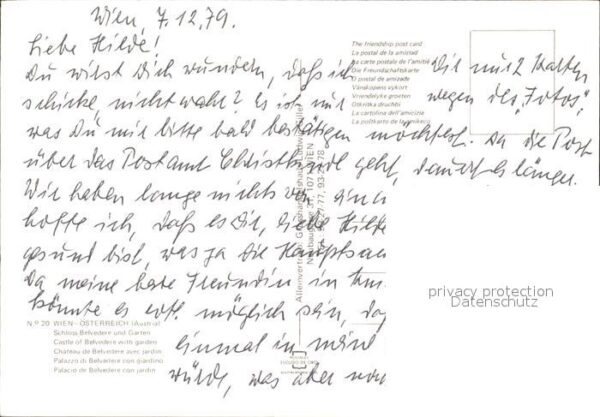 Wien, 7.12.79.
Liebe Hilde!
Du wirst Dich wundern, daß ich Dir nur 2 Karten
schicke, nicht wahr? Es ist nur wegen des "Fotos",
was Du mir bitte bald bestätigen möchtest. Da die Post
über das Postamt Christkindl geht, dauert es länger.
Wir haben lange nichts von einan
hoffe ich, daß es Dir, liebe Hilde
gesund bist, was ja die Hauptsac
Da meine Freundin in
könnte es evtl. möglich sein, daß
einmal in mein
würde, was aber noch
The friendship post card
La postal de la amistad
La carte postale de l'amitié
Die Freundschaftskarte
El postal de amizade
Vänskapens vykort
Vriendelyke groeten
Otkritka druzhbi
La cartolina dell'amicizia
Alleinvertrieb:
N.º 20 WIEN - ÖSTERREICH (Austria)
Schloss Belvedere und Garten
Castle of Belvedere with garden
Château de Belvedere avec jardin
Palazzo di Belvedere con giardino
Palacio de Belvedere con jardín
privacy protection
Datenschutz